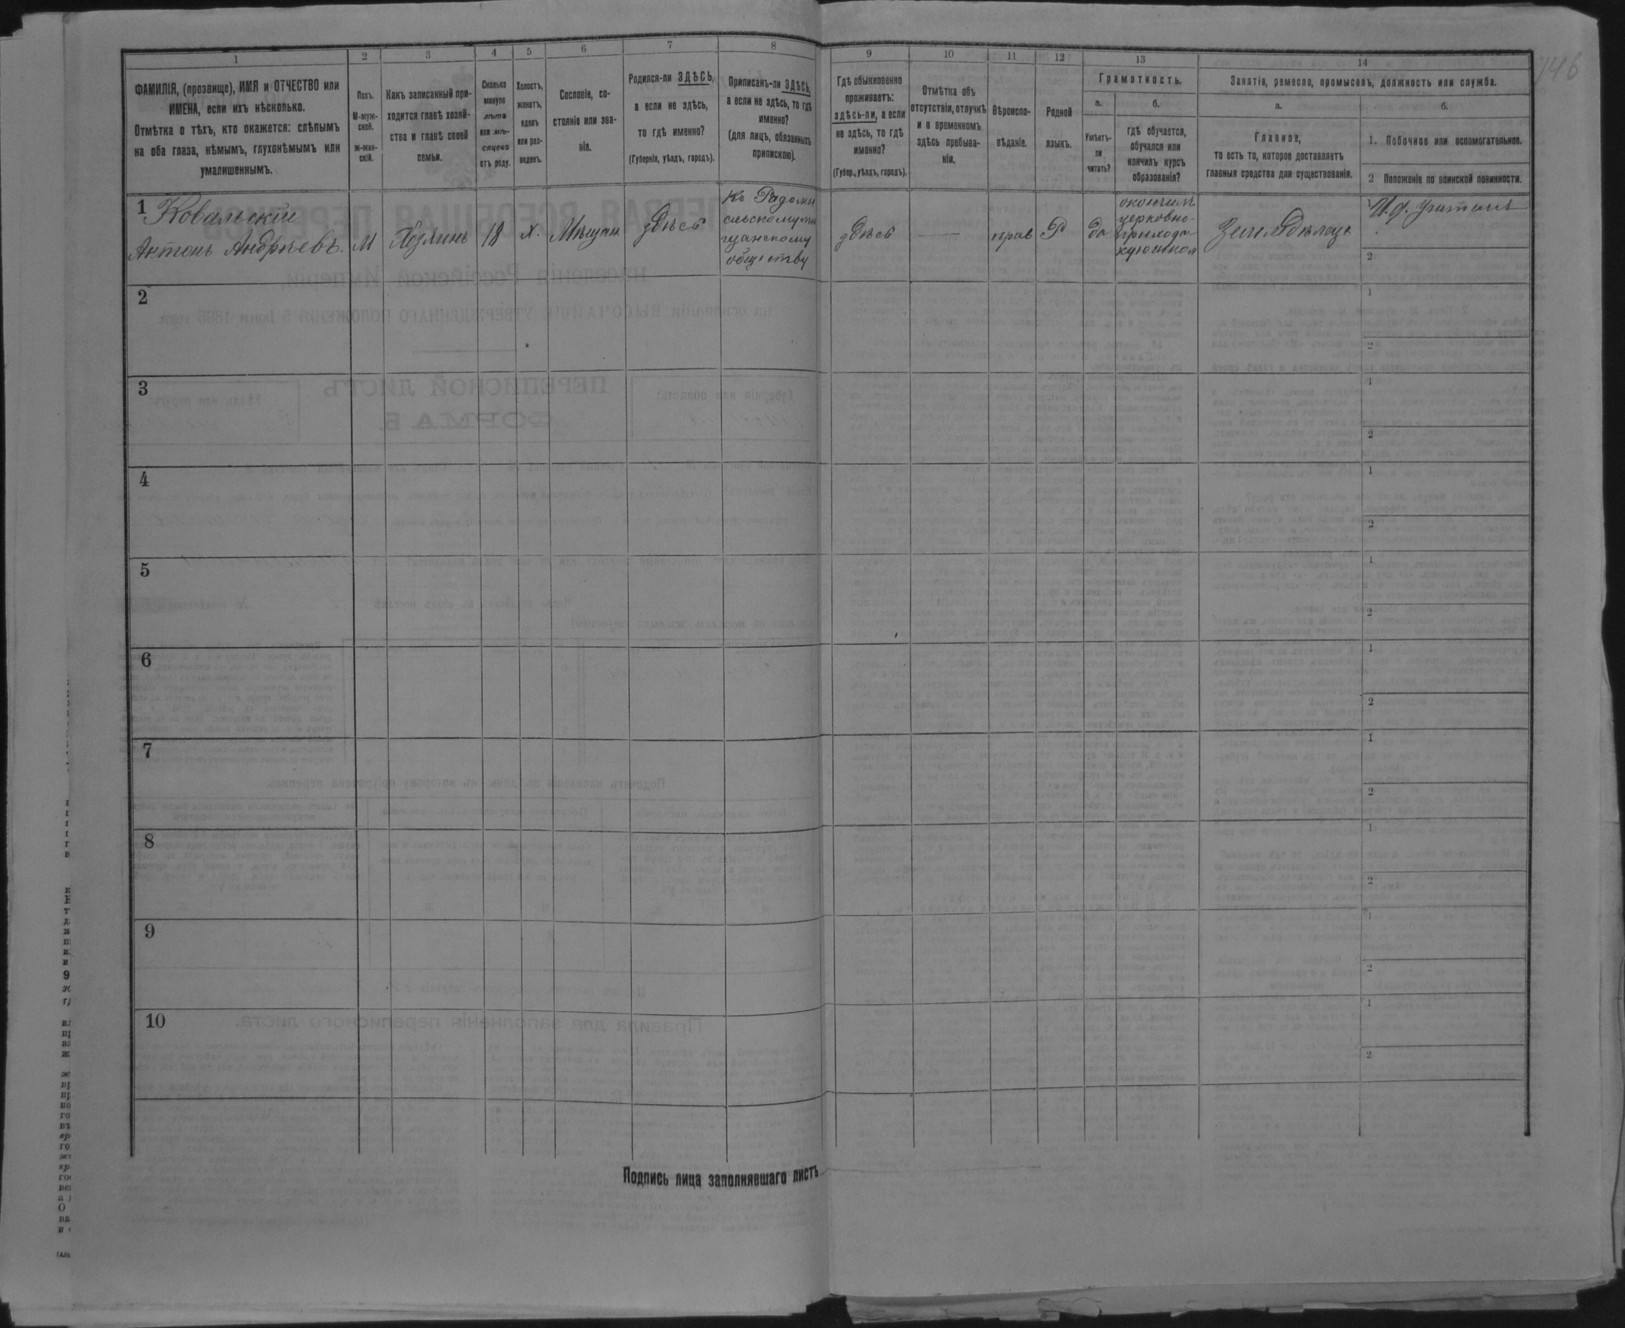 146
1 2 3 4 5 6 7 8 9 10 11 12 13 14
ФАМИЛІЯ, (прозвище), ИМЯ и ОТЧЕСТВО или
ИМЕНА, если ихъ нѣсколько.
Отмѣтка о тѣхъ, кто окажется: слѣпымъ
на оба глаза, нѣмымъ, глухонѣмымъ или
умалишеннымъ.
Полъ.
М-муж-
ской.
ж-жен-
скій.
Какъ записанный при-
ходится главѣ хозяй-
ства и главѣ своей
семьи.
Сколько
минуло
лѣтъ
или мѣ-
сяцевъ
отъ роду.
Холостъ,
женатъ,
вдовъ
или раз-
веденъ.
Сословіе, со-
стояніе или зва-
ніе.
Родился-ли ЗДѢСЬ,
а если не здѣсь,
то гдѣ именно?
(Губернія, уѣздъ, городъ).
Приписанъ-ли ЗДѢСЬ,
а если не здѣсь, то гдѣ
именно?
(для лицъ, обязанныхъ
припискою).
Гдѣ обыкновенно
проживаетъ:
здѣсь-ли, а если
не здѣсь, то гдѣ
именно?
(Губер., уѣздъ, городъ).
Отмѣтка объ
отсутствіи, отлучкѣ
и о временномъ
здѣсь пребыва-
ніи.
Вѣроиспо-
вѣданіе.
Родной
языкъ.
Грамотность.
а.
Умѣетъ-
ли
читать?
б.
гдѣ обучается,
обучался или
кончилъ курсъ
образованія?
Занятіе, ремесло, промыселъ, должность или служба.
а.
Главное,
то есть то, которое доставляетъ
главныя средства для существованія.
б.
1. Побочное или вспомогательное.
2 Положеніе по воинской повинности.
1 Ковальскій
Антонъ Андреевъ.
М
Хозяинъ
18
Х.
Мѣщан
здѣсь
Къ Радомы
сльскому мѣ
щанскому
обществу
здѣсь
—
прав
Р
да
окончилъ
церковно-
приходс
Земледѣлецъ
2
2
1
2
3
1
2
4
1
2
5
1
2
6
1
2
7
1
2
8
1
2
9
1
2
10
1
2
Подпись лица заполнявшаго листъ